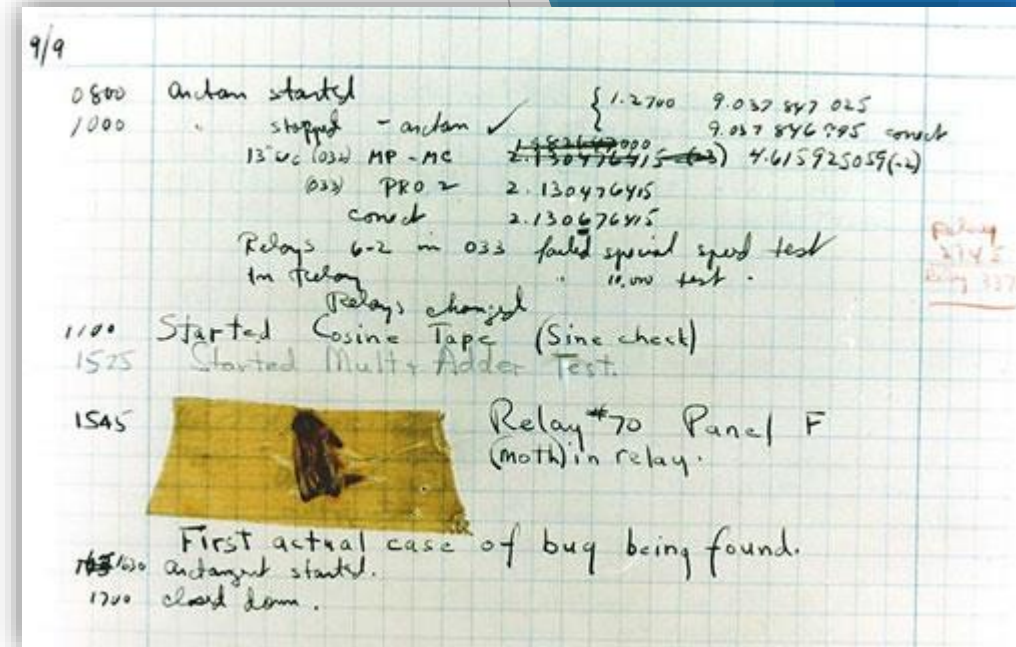 9/9
0800 Antan started { 1.2700 9.037 847 025
1000 " stopped - antan ✓ 9.037 846 995 correct
13"uc (032) MP - MC 2.130476415 (-3) 4.615925059(-2)
(033) PRO 2 2.130476415
correct 2.130676415
Relays 6-2 in 033 failed special speed test
In Relay " 10.000 test .
Relays changed
1100 Started Cosine Tape (Sine check)
1525 Started Mult + Adder Test.
1545 Relay #70 Panel F
(moth) in relay.
First actual case of bug being found.
1630 antangent started.
1700 closed down.
Relay
2145
Relay 337